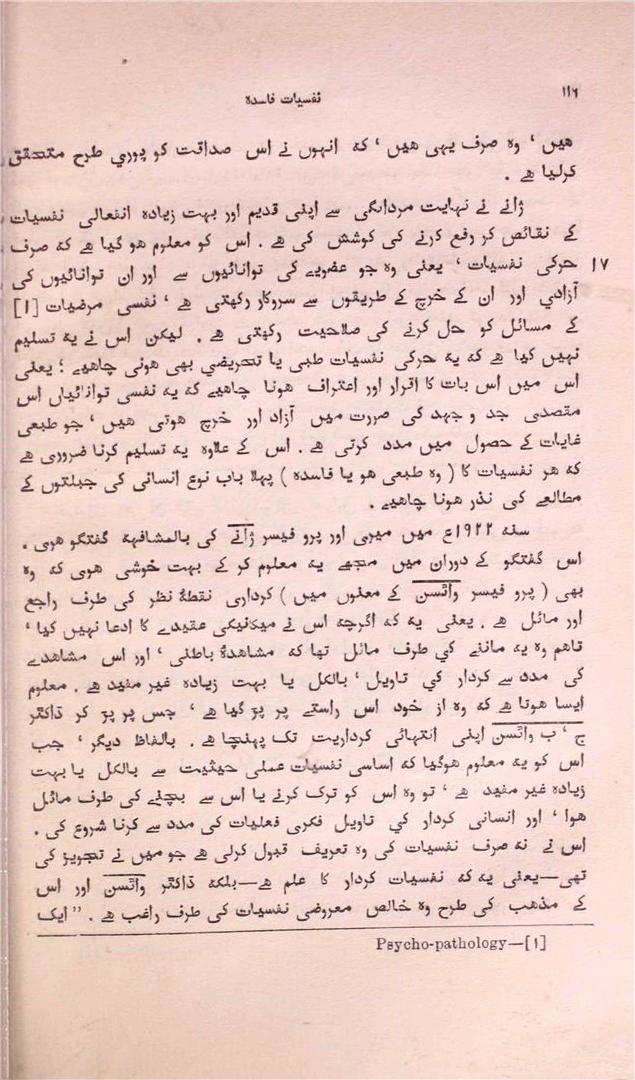 ۱۱۶
نفسیات فاسدہ
ھیں ' وہ صرف یہی ھیں ' کہ انہوں نے اس صداقت کو پوري طرح متحقق
کرلیا ھے .
ژانے نے نہایت مردانگی سے اپنی قدیم اور بہت زیادہ انفعالی نفسیات
کے نقائص کر رفع کرنے کی کوشش کی ھے . اس کو معلوم ھو گیا ھے کہ صرف
۱۷ حرکی نفسیات ' یعنی وہ جو عضویے کی توانائیوں سے اور ان توانائیوں کی
آزادي اور ان کے خرچ کے طریقوں سے سروکار رکھتی ھے ' نفسی مرضیات [۱]
کے مسائل کو حل کرنے کی صلاحیت رکھتی ھے . لیکن اس نے یہ تسلیم
نہیں کیا ھے کہ یہ حرکی نفسیات طبی یا تحریضی بھی ھونی چاھیے ؛ یعنی
اس میں اس بات کا اقرار اور اعتراف ھونا چاھیے کہ یہ نفسی توانائیاں اس
مقصدی جد و جہد کی صررت میں آزاد اور خرچ ھوتی ھیں ' جو طبعی
غایات کے حصول میں مدد کرتی ھے . اس کے علاوہ یہ تسلیم کرنا ضروری ھے
کہ ھر نفسیات کا ( وہ طبعی ھو یا فاسدہ ) پہلا باب نوع انسانی کی جبلتوں کے
مطالعے کی نذر ھونا چاھیے .
سنہ ۱۹۲۲ع میں میری اور پرو فیسر ژانے کی بالمشافہہ گفتگو ھوی .
اس گفتگو کے دوران میں مجھے یہ معلوم کر کے بہت خوشی ھوی کہ وہ
بھی ( پرو فیسر واٹسن کے معنوں میں ) کرداری نقطۂ نظر کی طرف راجع
اور مائل ھے . یعنی یہ کہ اگرچہ اس نے میکانیکی عقیدے کا ادعا نہیں کیا '
تاھم وہ یہ ماننے کی طرف مائل تھا کہ مشاھدۂ باطنی ' اور اس مشاھدے
کی مدد سے کردار کي تاویل ' بالکل یا بہت زیادہ غیر مفید ھے . معلوم
ایسا ھوتا ھے کہ وہ از خود اس راستے پر پڑ گیا ھے ' جس پر پڑ کر ڈاکٹر
ج ' ب واٹسن اپنی انتہائی کرداریت تک پہنچا ھے . بالفاظ دیگر ' جب
اس کو یہ معلوم ھوگیا کہ اساسی نفسیات عملی حیثیت سے بالکل یا بہت
زیادہ غیر مفید ھے ' تو وہ اس کو ترک کرنے یا اس سے بچنے کی طرف مائل
ھوا ' اور انسانی کردار کي تاویل فکری فعلیات کی مدد سے کرنا شروع کی .
اس نے نہ صرف نفسیات کی وہ تعریف قبول کرلی ھے جو میں نے تجویز کی
تھی—یعنی یہ کہ نفسیات کردار کا علم ھے—بلکہ ڈاکٹر واٹسن اور اس
کے مذھب کی طرح وہ خالص معروضی نفسیات کی طرف راغب ھے . " ایک
Psycho-pathology—[۱]